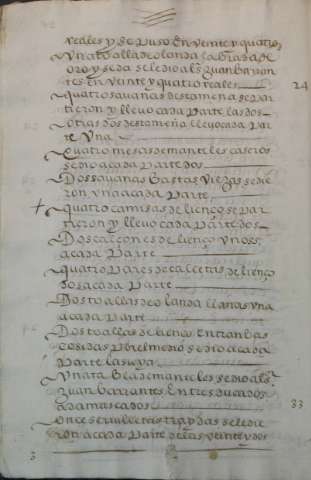 reales y se puso en veinte y quatro
Una toalla de olanda labrada de
oro y seda se le dio al s. juan ba
en veinte y quatro reales 24
quatro savanas destameña se par
tieron y llevo cada parte las dos
otras dos destameña llevo cada par
te Una
quatro mesas de manteles caseros
se dio a cada parte dos
Dos savanas bastas viejas se die
ron una a cada parte
+ quatro camisas de lienço se par
tieron y llevo cada parte dos
Dos calçones de lienço unos
a cada parte
quatro pares de calcetas de lienço
dos a cada parte
Dos toallas de olanda llanas una
a cada parte
Dos toallas de lienço entranbas
cosidas por el medio se dio a cada
parte la suya
Una tabla de manteles se dio al s.
juan barrantes en tres ducados
adamascados 33
once servilletas traydas se le die
ron a cada parte de las veinte y dos
3